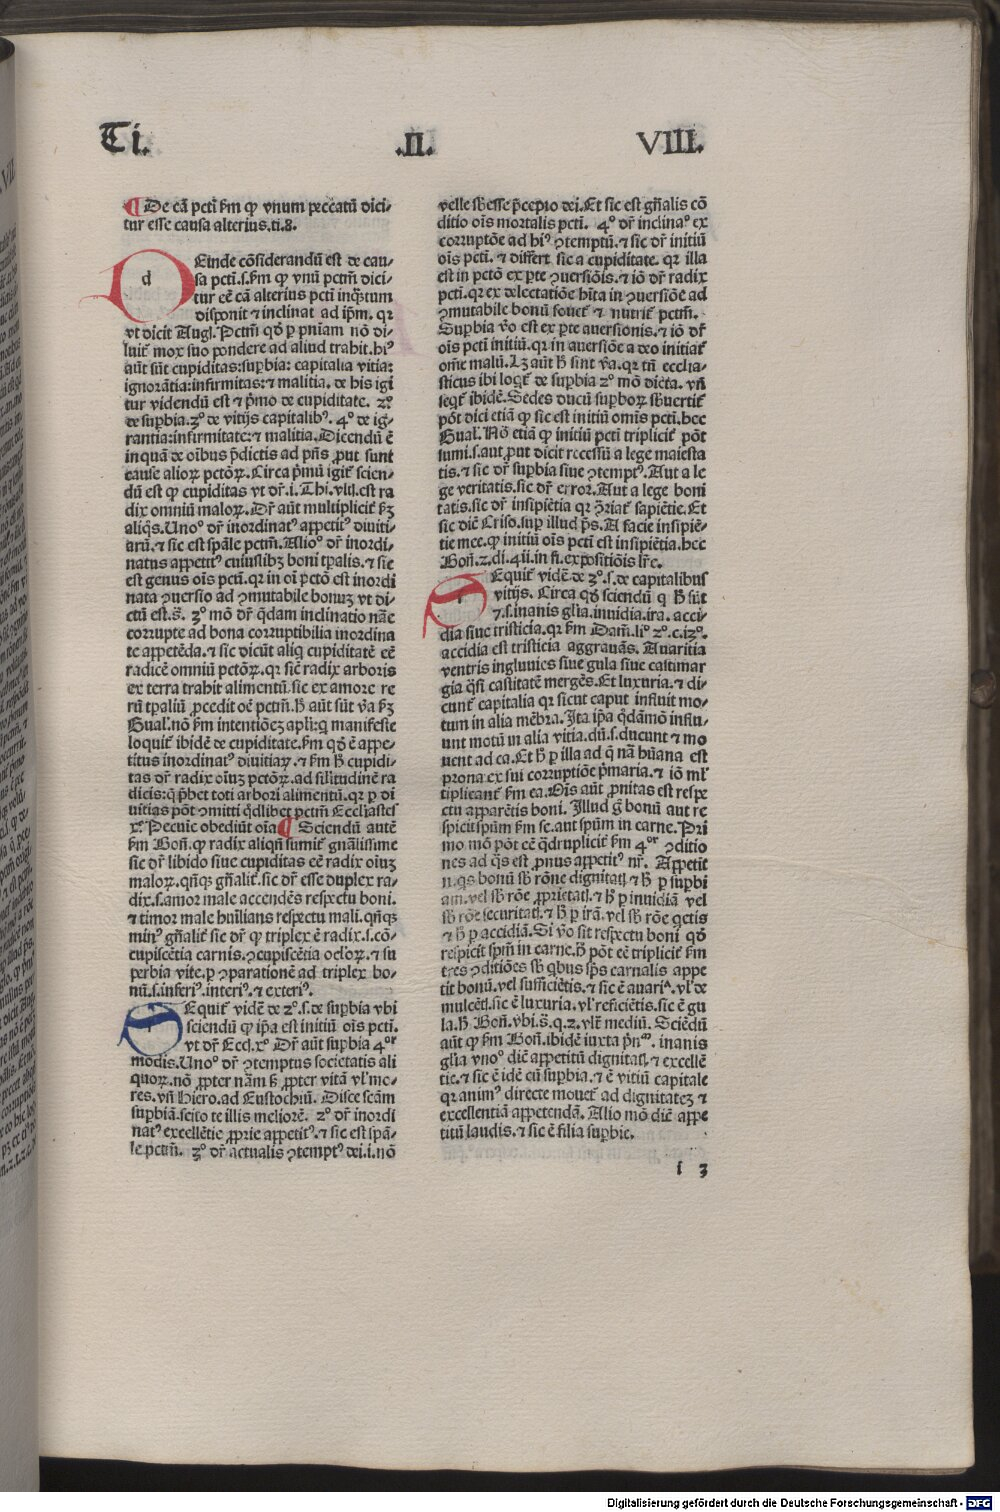 Ti. .II. VIII.
¶ De cā pcti ẜm ꝙ vnum peccatū dici⸗
tur esse causa alterius.ti.8.
d Einde cōsiderandū est de cau⸗
sa pcti.s.ẜm ꝙ vnū pctm̄ dici⸗
tur eē cā alterius pcti inqᷓtum
disponit ⁊ inclinat ad ip̄m. qr
vt dicit Augꝰ. Pctm̄ qd̄ ꝑ pn̄iam nō di⸗
luit̄ mox suo pondere ad aliud trahit.hiꝰ
aūt sūt cupiditas:suꝑbia: capitalia vitia:
ignorātia:infirmitas:⁊ malitia. de his igi
tur videndū est ⁊ p̄mo de cupiditate. 2º.
de suꝑbia.3º de vitijs capitalibꝰ. 4º de ig⸗
rantia:infirmitate:⁊ malitia. Dicendū ē
inquā de oībus p̄dictis ad pn̄s ꝓut sunt
cause alioꝝ pctōꝝ. Circa p̄mū igit̄ scien⸗
dū est ꝙ cupiditas vt dr̄.i. Thi. vlti.est ra
dix omniū maloꝝ. Dr̄ aūt multiplicit̄ ẜꝫ
aliqͦs. Unoº dr̄ inordinatꝰ appetitꝰ diuiti⸗
arū.⁊ sic est spāle pctm̄. Alioº dr̄ inordi⸗
natus appetitꝰ cuiuslibꝫ boni tꝑalis.⁊ sic
est genus oīs pcti.qr in oī pctō est inordi
nata ꝯuersio ad ꝯmutabile bonuꝫ vt di⸗
ctū est.s̄. 3º mō dr̄ qᷓdam inclinatio nāe
corrupte ad bona corruptibilia inordina
te appetēda.⁊ sic dicūt aliꝗ cupiditatē eē
radicē omniū pctōꝝ. qr sic̄ radix arboris
ex terra trahit alimentū.sic ex amore re
rū tꝑaliū ꝓcedit oē pctm̄. H̄ aūt sūt v̄a ẜꝫ
Gual. nō ẜm intentiōeꝫ apl̄i:ꝗ manifeste
loquit̄ ibidē de cupiditate.ẜm qd̄ ē appe⸗
titus inordinatꝰ diuitiaꝝ.⁊ ẜm h̄ cupidi⸗
tas dr̄ radix oīuꝫ pctōꝝ.ad sil̄itudinē ra
dicis:ꝗ p̄bet toti arbori alimentū.qr ꝑ di
uitias pōt ꝯmitti qdlibet pctm̄ Eccl̄iastes
xº Pecunie obediūt oīa ¶ Sciendū autē
ẜm Bon̄. ꝙ radix aliqn̄ sumit̄ gn̄alissime
sic dr̄ libido siue cupiditas eē radix oīuꝫ
maloꝝ.qn̄ꝗ gn̄alit̄.sic dr̄ esse duplex ra⸗
dix.s.amor male accendēs respectu boni.
⁊ timor male humilians respectu mali.qn̄ꝗ
minꝰ gn̄alit̄ sic dr̄ ꝙ triplex ē radix.s.cō⸗
cupiscētia carnis.ꝯcupiscētia ocl̄oꝝ.⁊ su
perbia vite.ꝑ ꝯparationē ad triplex bo⸗
nū.s.inferiꝰ.interiꝰ.⁊ exteriꝰ.
Equit̄ vidēe de 2º.s.de suꝑbia vbi
sciendū ꝙ ip̄a est initiū oīs pcti.
vt dr̄ Eccl̄.xº Dr̄ aūt suꝑbia 4ºʳ
modis. Unoº dr̄ ꝯtemptus societatis ali
quoꝝ.nō ꝓpter nām ẜ ꝓpter vitā vl̄ mo⸗
res.vn̄ Hiero.ad Eustochiū. Disce sc̄am
suꝑbiā.scito te illis meliorē. 2º dr̄ inordi
natꝰ excellētie ꝓprie appetitꝰ.⁊ sic est spā⸗
le pctm̄. 3º dr̄ actualis ꝯtemptꝰ dei.i.nō
velle sb̄esse p̄cepto dei. Et sic est gn̄alis cō
ditio oīs mortalis pcti. 4º dr̄ inclinaº ex
corruptōe ad hiꝰ ꝯtemptū.⁊ sic dr̄ initiū
oīs pcti. ⁊ differt̄ sic a cupiditate. qr illa
est in pctō ex ꝑte ꝯuersiōis.⁊ iō dr̄ radix
pcti.qr ex delectatiōe h̄ita in ꝯuersiōe ad
ꝯmutabile bonū fouet̄ ⁊ nutrit̄ pctm̄.
Suꝑbia v̄o est ex ꝑte auersionis.⁊ iō dr̄
oīs pcti initiū.qr in auersiōe a deo initiat̄
om̄e malū. Lꝫ aūt h̄ sint v̄a. qr tn̄ ecclia⸗
sticus ibi loqt̄ de suꝑbia 2º mō dicta. vn̄
seqt̄ ibidē. Sedes ducū suꝑboꝝ sb̄uertit̄
pōt dici etiā ꝙ sic est initiū omīs pcti.hec
Gual. Nō etiā ꝙ initiū pcti triplicit̄ pōt
sumi.s.aut ꝓut dicit recessū a lege maiesta
tis.⁊ sic dr̄ suꝑbia siue ꝯtemptꝰ. Aut a le
ge veritatis.sic dr̄ error. Aut a lege boni
tatis.sic dr̄ insipiētia qr ꝯ̄riat̄ sapiētie. Et
sic diē Criso.suꝑ illud ps̄. A facie insipiē⸗
tie mee.ꝙ initiū oīs pcti est insipiētia.hec
Bon̄.2.di.4ii.in fi.expositiōis lr̄e.
Equit̄ vidēe de 3º.s.de capitalibus
vitijs. Circa qd̄ sciendū ꝗ h̄ sūt
7.s.inanis gl̄ia.inuidia.ira. acci
dia siue tristicia.qr ẜm Dam̄.liº 2º.c.i2º.
accidia est tristicia aggrauās. Auaritia
ventris ingluuies siue gula siue castimar
gia qͣsi castitatē mergēs. Et luxuria. ⁊ di⸗
cunt̄ capitalia qr sicut caput influit mo⸗
tum in alia mēbra. Ita ip̄a qᷓdāmō influ⸗
unt motū in alia vitia.dū.s.ducunt ⁊ mo
uent ad ea. Et h̄ ꝑ illa ad q̄ nā hūana est
prona ex sui corruptiōe p̄maria.⁊ iō ml̓
tiplicant̄ ẜm ea. Oīs aūt ꝓnitas est respe
ctu apparētis boni. Illud g̊ bonū aut re
spicit spūm ẜm se.aut spūm in carne. Pri
mo mō pōt eē qᷓdruplicit̄ ẜm 4ºʳ ꝯditio
nes ad qͣs est ꝓnus appetitꝰ nr̄. Appetit
n.qs bonū sb̄ rōne dignitatꝭ ⁊ h̄ ꝑ suꝑbi
am.vel sb̄ rōe ꝓprietatꝭ.⁊ h̄ ꝑ inuidiā vel
sb̄ rōe securitatꝭ.⁊ h̄ ꝑ irā. vel sb̄ rōe qetis
⁊ h̄ ꝑ accidiā. Si v̄o sit respectu boni qd̄
respicit spm̄ in carne.h̄ pōt eē triplicit̄ ẜm
tres ꝯditiōes sb̄ qbus sp̄s carnalis appe
tit bonū.vel sufficiētis.⁊ sic ē auariᵃ.vl̄ de
mulcētꝭ.sic ē luxuria. vl̄ reficiētis.sic ē gu
la.h̄ Bon̄.vbi.s̄.q.2.vlt̄ mediū. Sciēdū
aūt ꝙ ẜm Bon̄.ibidē iuxta p̄nᵐ. inanis
gl̄ia vnoº diē appetitū dignitatꝭ.⁊ excellē
tie.⁊ sic ē idē cū suꝑbia.⁊ ē vitiū capitale
qr animꝰ directe mouet̄ ad dignitateꝫ ⁊
excellentiā appetendā. Alio mō diē appe
titū laudis.⁊ sic ē filia suꝑbie.
i 3
Digitalisierung gefördert durch die Deutsche Forschungsgemeinschaft - DFG